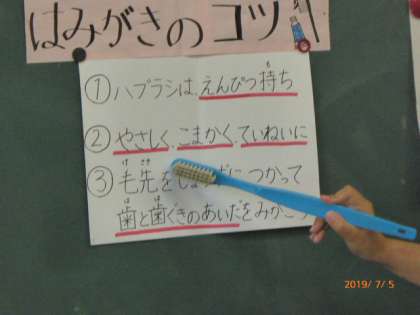 はみがきのコツ
① ハブラシは、えんぴつ持ち
② やさしく、こまかく、ていねいに
③ 毛先を につかって
歯と歯ぐきのあいだをみがこう
2019/ 7/ 5